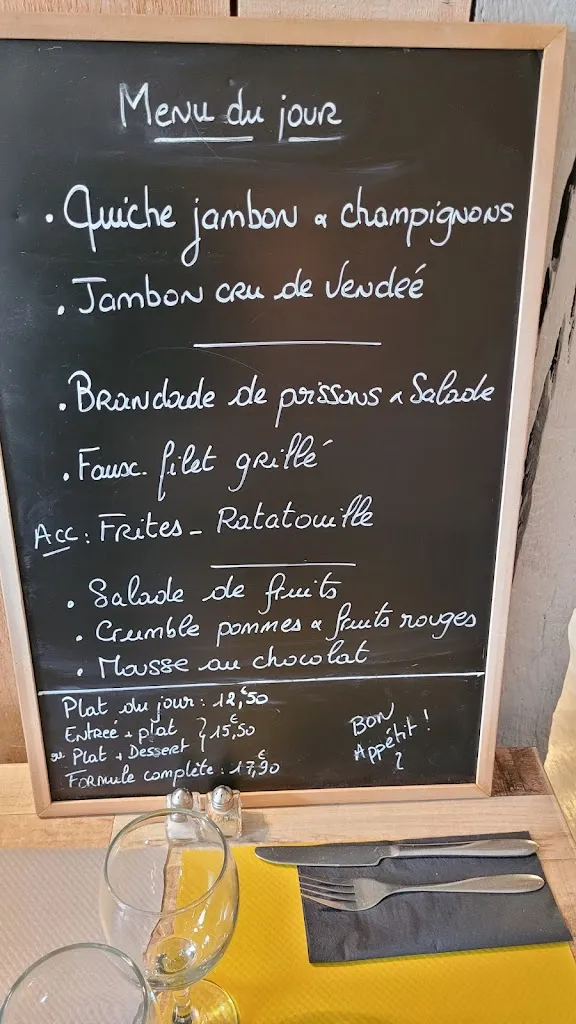 Menu du jour
• Quiche jambon & champignons
• Jambon cru de Vendeé
• Brandade de poissons & Salade
• Faux-filet grillé
Acc : Frites - Ratatouille
• Salade de fruits
• Crumble pommes & fruits rouges
• Mousse au chocolat
Plat du jour : 12,€50
Entrée + plat } 15,€50
ou Plat + Dessert
Formule complète : 17,€90
Bon
Appétit !